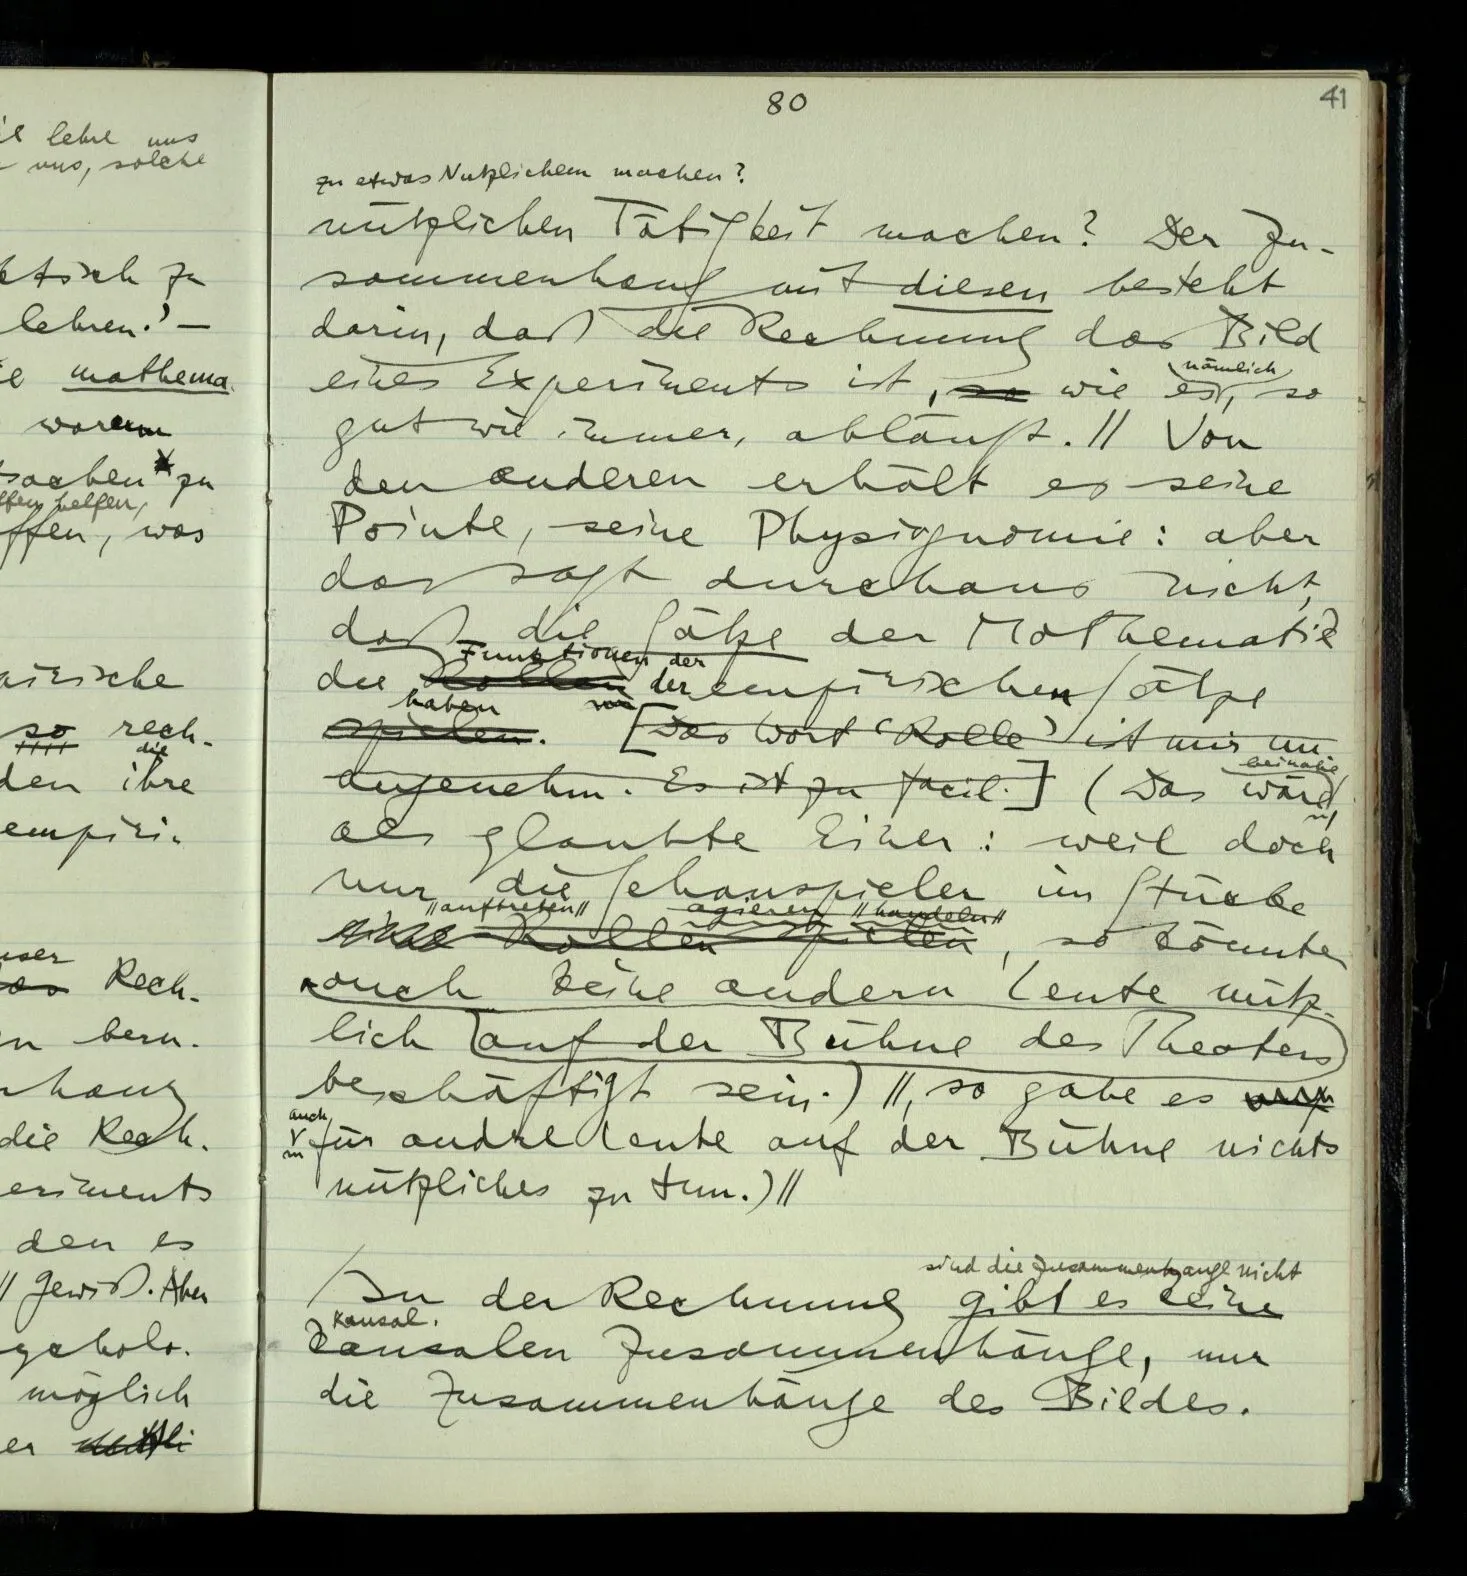 80
41
lehre uns
uns, solche
zu
lehren.' –
mathema-
warum
sachen zu
helfen,
ffen, was
airische
so rech-
die
den ihre
empiri-
user
das Rech-
n beru-
nhang
die Rech-
eriments
den es
// Gewiß. Aber
ycholo-
möglich
er
zu etwas Nützlichem machen?
nützlichen Tätigkeit machen? Der Zu-
sammenhang mit diesen besteht
darin, daß die Rechnung das Bild
nämlich
eines Experiments ist, so wie es, so
gut wie immer, abläuft. // Von
den anderen erhält es seine
Pointe, seine Physiognomie: aber
das sagt durchaus nicht,
daß die Sätze der Mathematik
Funktionen der
die Rollen der empirischen Sätze
haben
spielen. [Das Wort 'Rolle' ist mir un-
beinahe
angenehm. Es ist zu facil.] (Das wäre,
als glaubte Einer: weil doch
nur die Schauspieler im Stücke
"auftreten" agieren "handeln"
eine Rollen spielen, so könnten
auch keine andern Leute nütz-
lich auf der Bühne des Theaters
beschäftigt sein.) //, so gäbe es
auch
für andre Leute auf der Bühne nichts
nützliches zu tun.) //
sind die Zusammenhänge nicht
/ In der Rechnung gibt es keine
kausal.
kausalen Zusammenhänge, nur
die Zusammenhänge des Bildes.